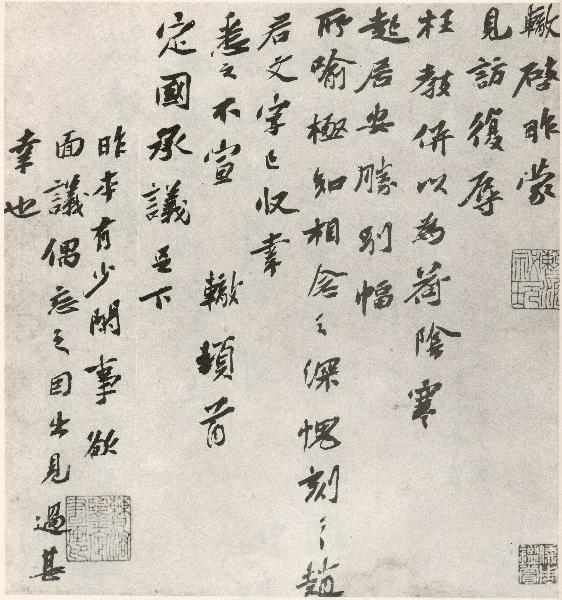 轍啓昨蒙
見訪復辱
枉教併以為荷陰寒
起居安勝別幅
所喻極知相念之深愧刻之趙
若文字已收幸
悉之不宣 轍頓首
定國承議足下
昨本有少閑事欲
面議偶忘之因出見過甚
幸也